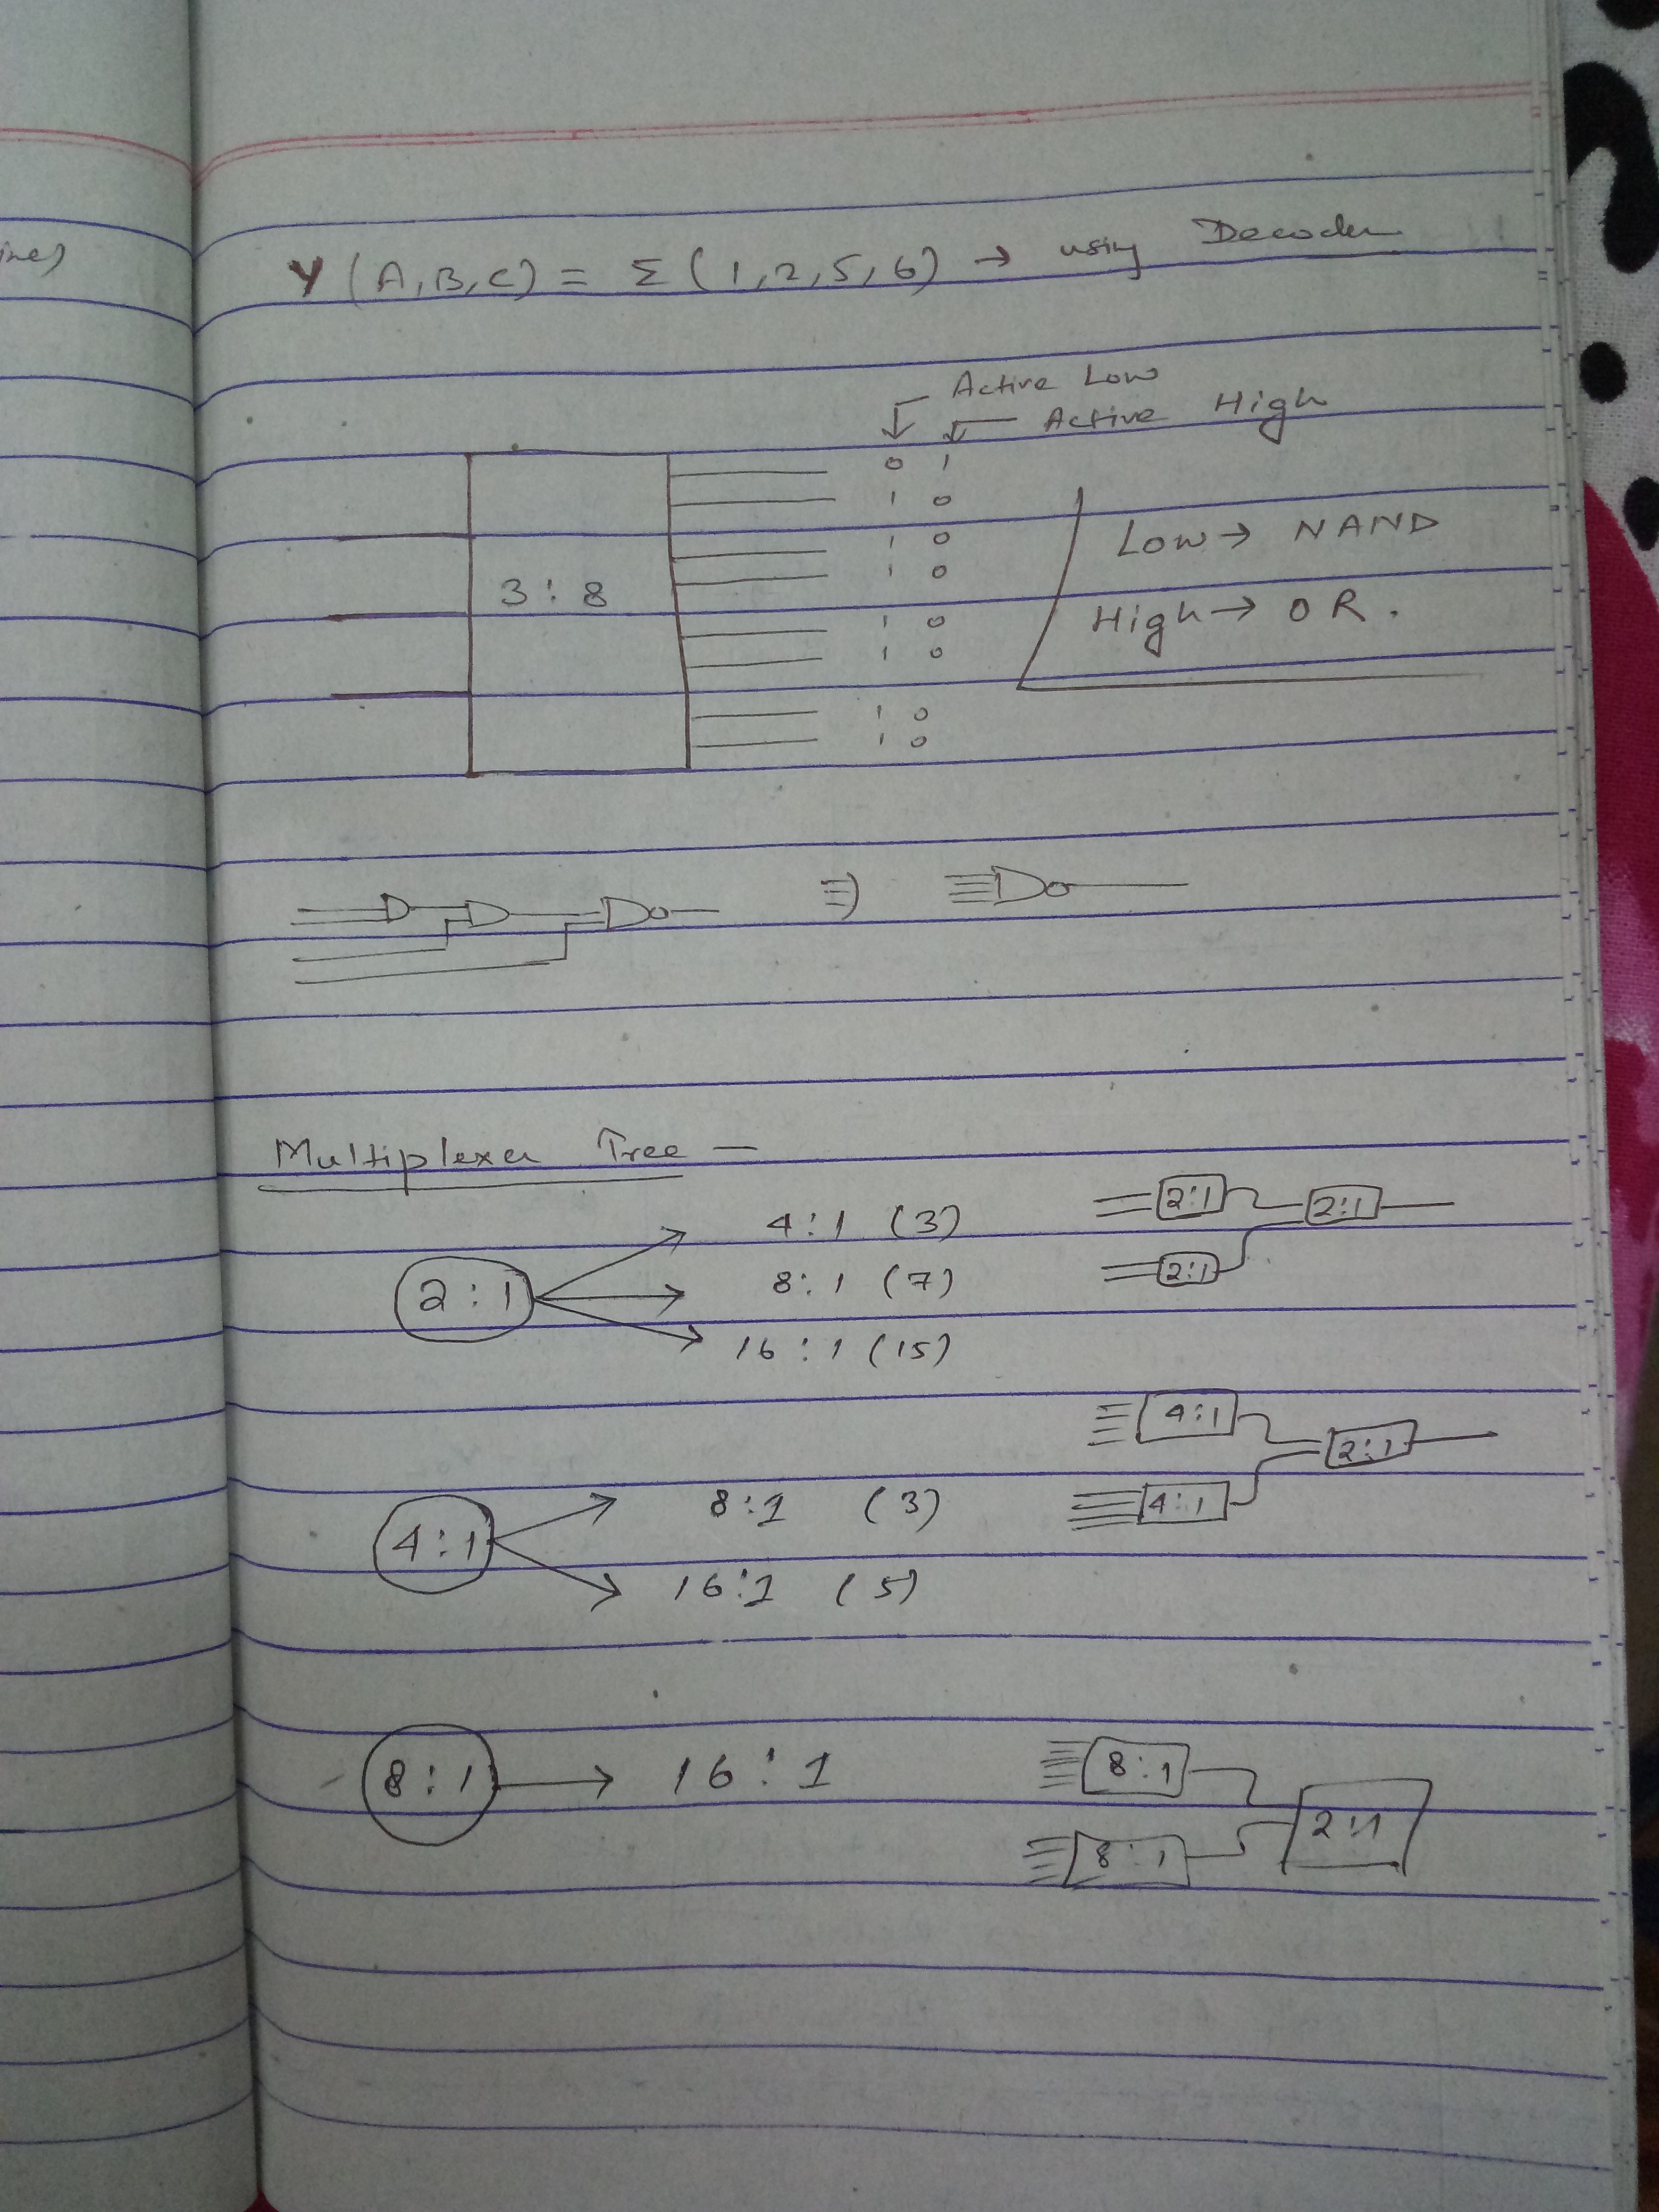 Y (A,B,C) = Σ (1,2,5,6) → using Decoder
Active Low
Active High
0 1
1 0
1 0
1 0
1 0
1 0
1 0
1 0
3:8
Low → NAND
High → OR.
Multiplexer Tree —
2:1
4:1 (3)
8:1 (7)
16:1 (15)
2:1
2:1
2:1
4:1
8:1 (3)
16:1 (5)
4:1
4:1
2:1
8:1 → 16:1
8:1
8:1
2:1